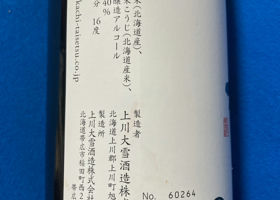 米(北海道産)、
米こうじ(北海道産米)、
醸造アルコール
40%
分 16度
kachi-taisetsu.co.jp
製造者
上川大雪酒造株
北海道上川郡上川町旭
製造所
上川大雪酒造株式会
北海道帯広市稲田町西2
No. 60264